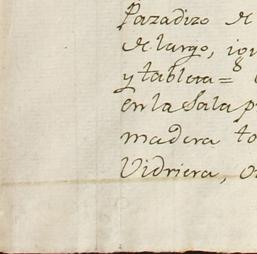 Pazadizo de
de largo, igu
y tablera=
en la Sala p
madera to
Vidriera, o